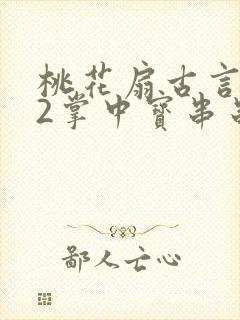 桃花扇古言
2掌中寳串
鄙人亡心